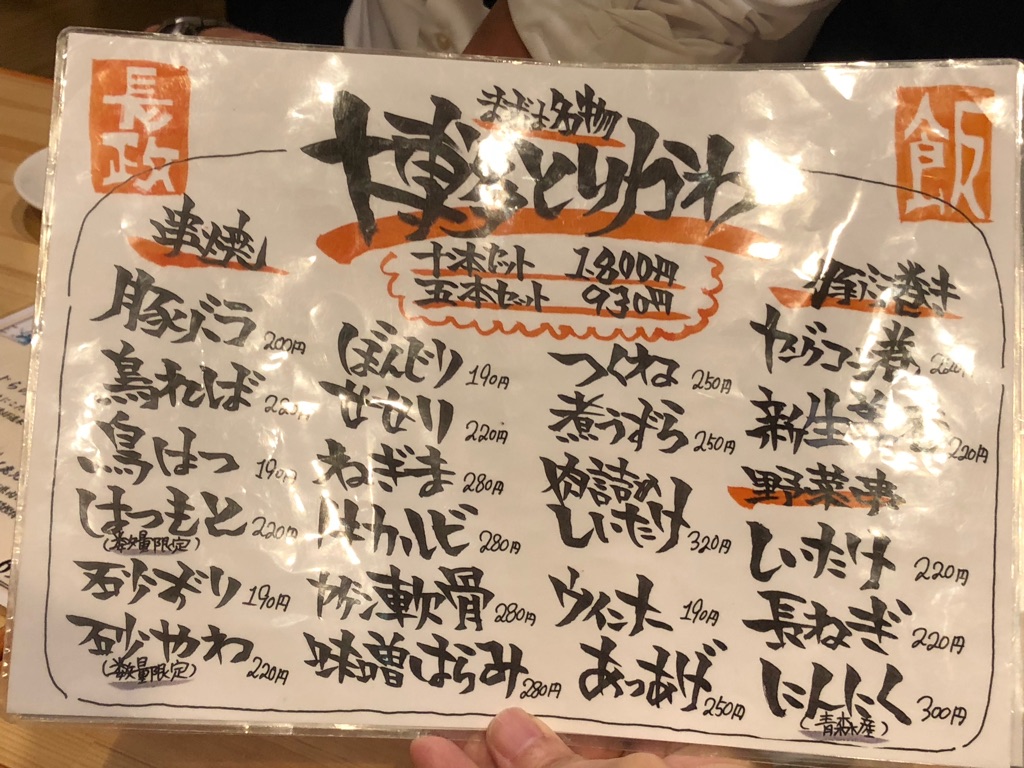 長政
飯
名物
博多とりかわ
十本セット 1,800円
五本セット 930円
串焼
豚バラ 200円
鳥ればー 220円
鳥はつ 190円
はつもと 220円
(数量限定)
砂ずり 190円
砂やわ 220円
(数量限定)
ぼんじり 190円
せせり 220円
ねぎま 280円
はカルビ 280円
軟骨 280円
味噌はらみ 280円
つくね 250円
煮うずら 250円
肉詰め
しいたけ 320円
ウインナー 190円
あつあげ 250円
豚バラ巻き
ヤングコーン巻 220円
新生姜 220円
野菜串
しいたけ 220円
長ねぎ 220円
にんにく 300円
(青森産)